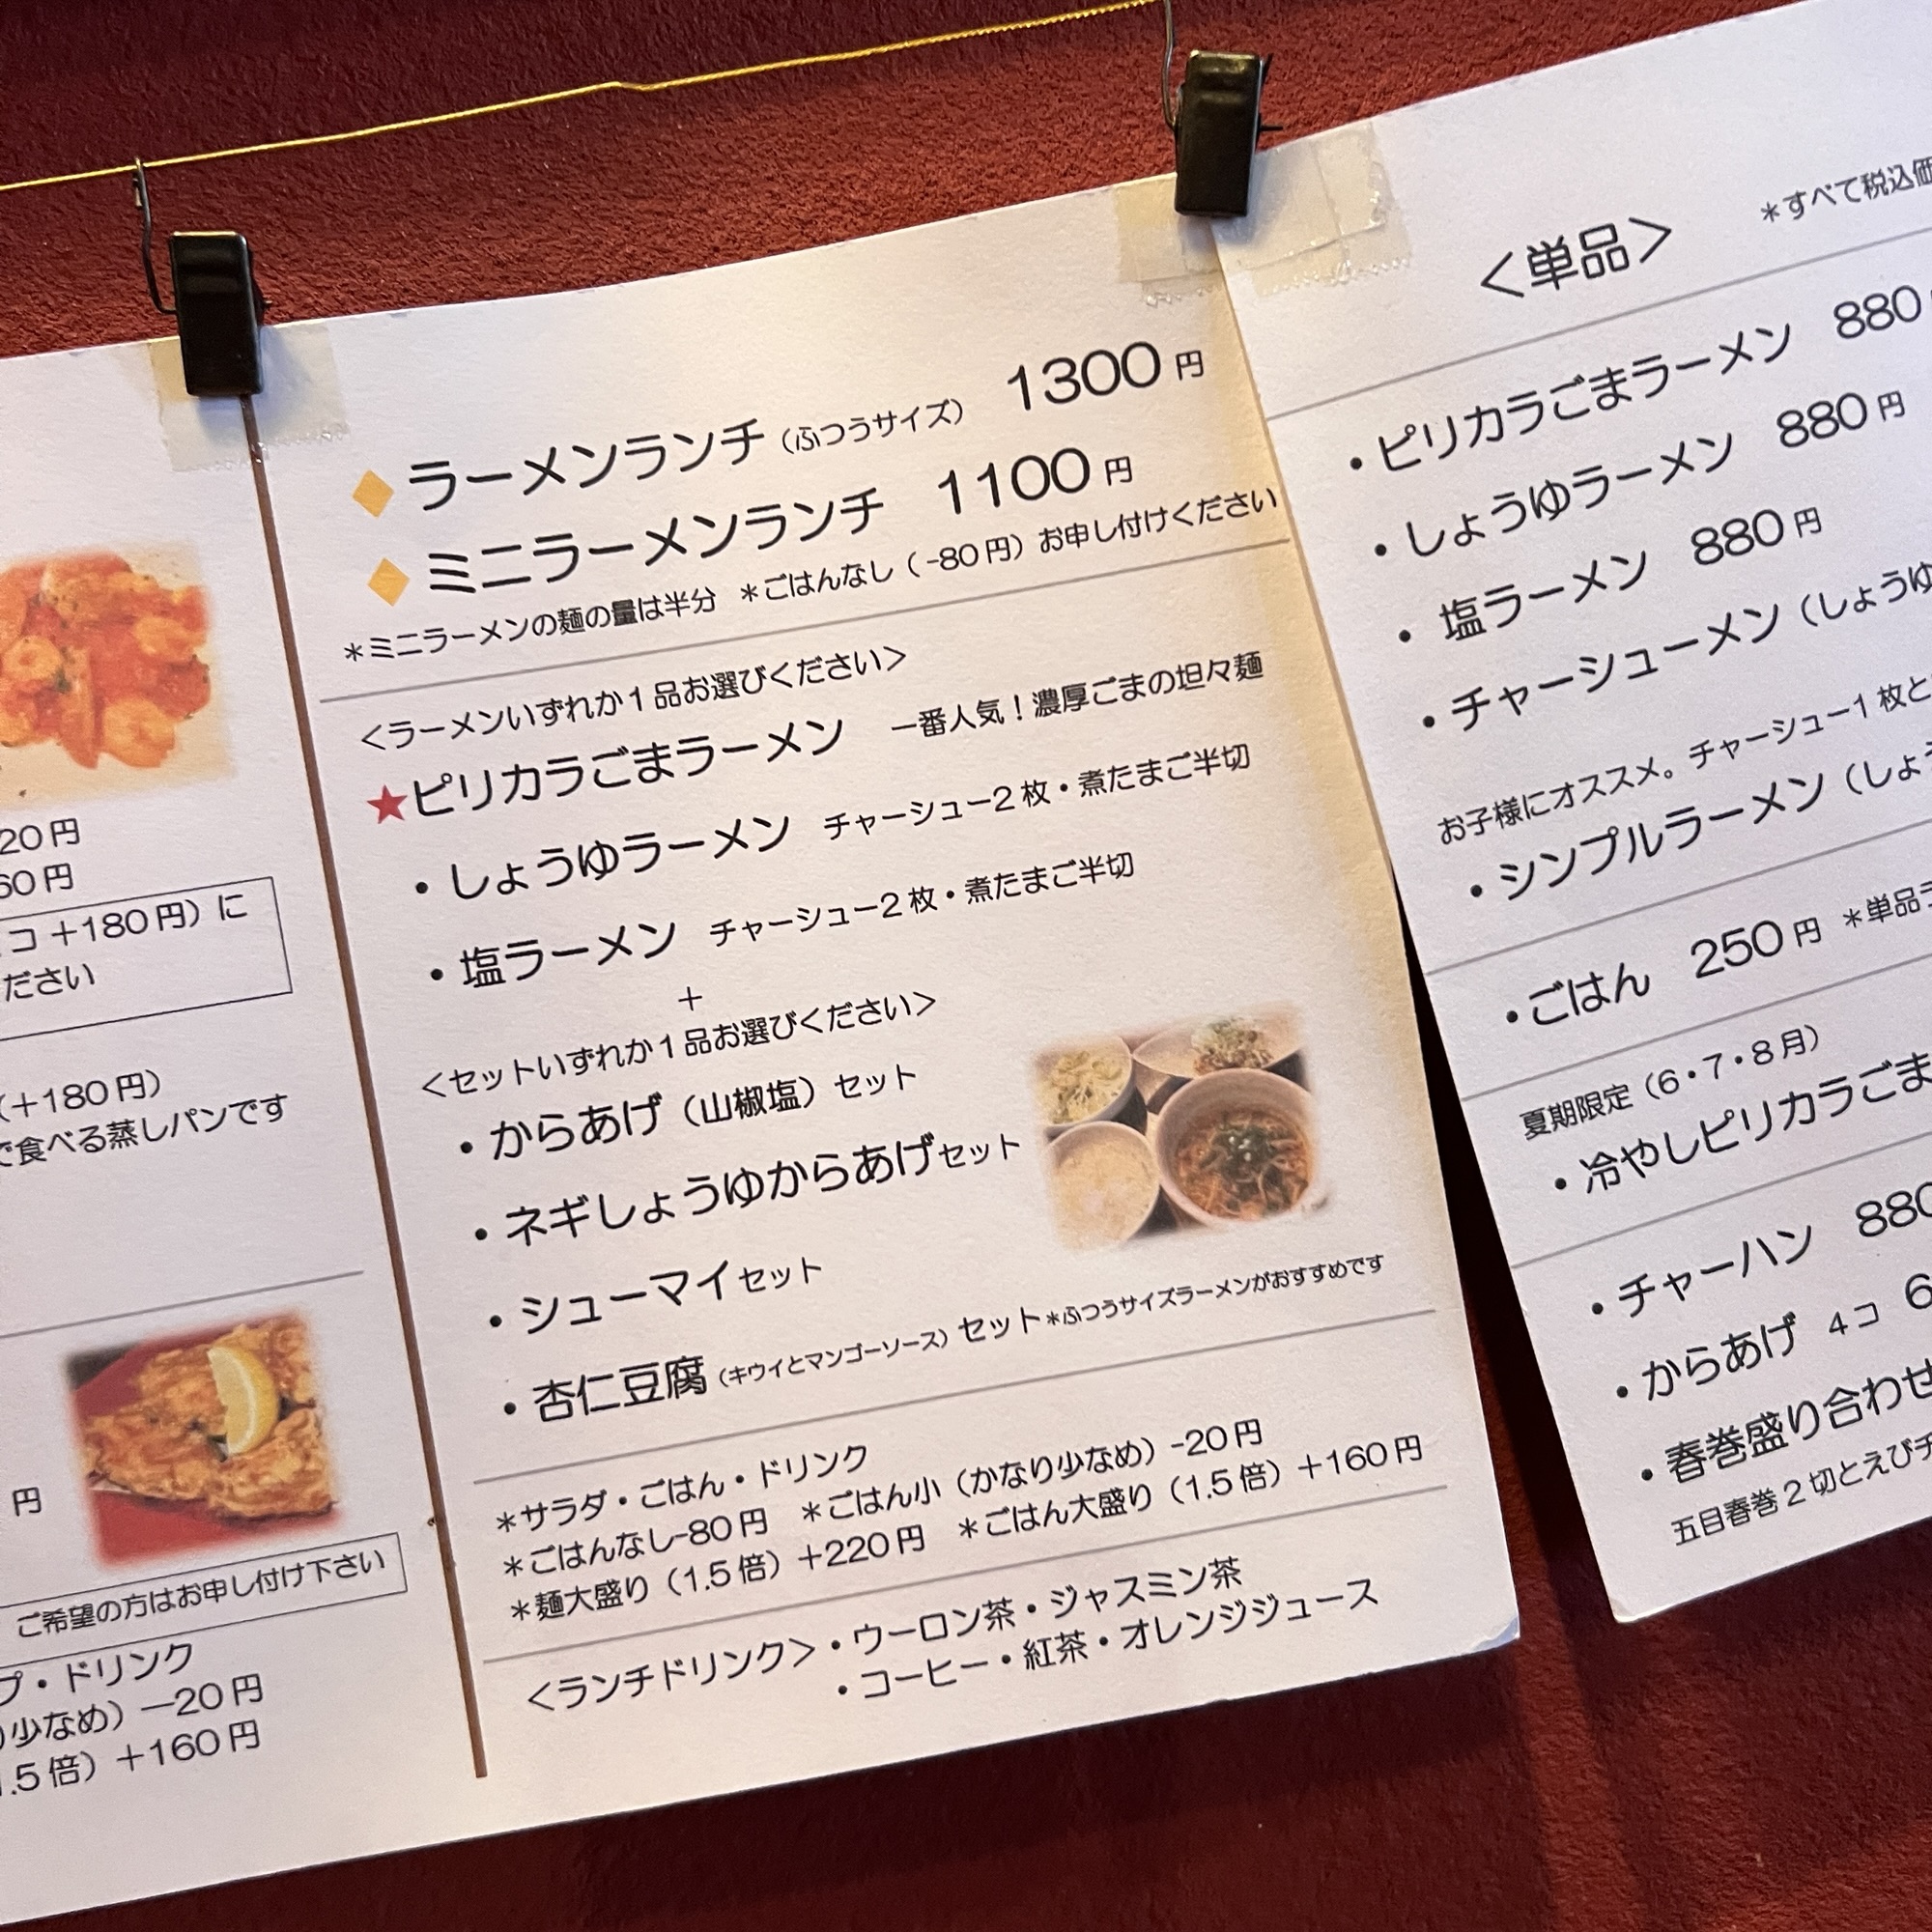 20円
60円
コ +180円）に
ださい
（+180円）
で食べる蒸しパンです
円
ご希望の方はお申し付け下さい
プ・ドリンク
り少なめ）—20円
1.5倍）+160円
◆ラーメンランチ（ふつうサイズ） 1300円
◆ミニラーメンランチ 1100円
＊ミニラーメンの麺の量は半分 ＊ごはんなし（-80円）お申し付けください
＜ラーメンいずれか1品お選びください＞
★ピリカラごまラーメン 一番人気！濃厚ごまの坦々麺
・しょうゆラーメン チャーシュー2枚・煮たまご半切
・塩ラーメン チャーシュー2枚・煮たまご半切
＋
＜セットいずれか1品お選びください＞
・からあげ（山椒塩）セット
・ネギしょうゆからあげセット
・シューマイセット
・杏仁豆腐（キウイとマンゴーソース）セット＊ふつうサイズラーメンがおすすめです
＊サラダ・ごはん・ドリンク
＊ごはんなし-80円 ＊ごはん小（かなり少なめ）-20円
＊麺大盛り（1.5倍）+220円 ＊ごはん大盛り（1.5倍）+160円
＜ランチドリンク＞・ウーロン茶・ジャスミン茶
・コーヒー・紅茶・オレンジジュース
＜単品＞ ＊すべて税込価
・ピリカラごまラーメン 880
・しょうゆラーメン 880円
・塩ラーメン 880円
・チャーシューメン（しょうゆ
お子様にオススメ。チャーシュー1枚と
・シンプルラーメン（しょう
・ごはん 250円 ＊単品ラ
夏期限定（6・7・8月）
・冷やしピリカラごま
・チャーハン 880
・からあげ 4コ 6
・春巻盛り合わせ
五目春巻2切とえびチ